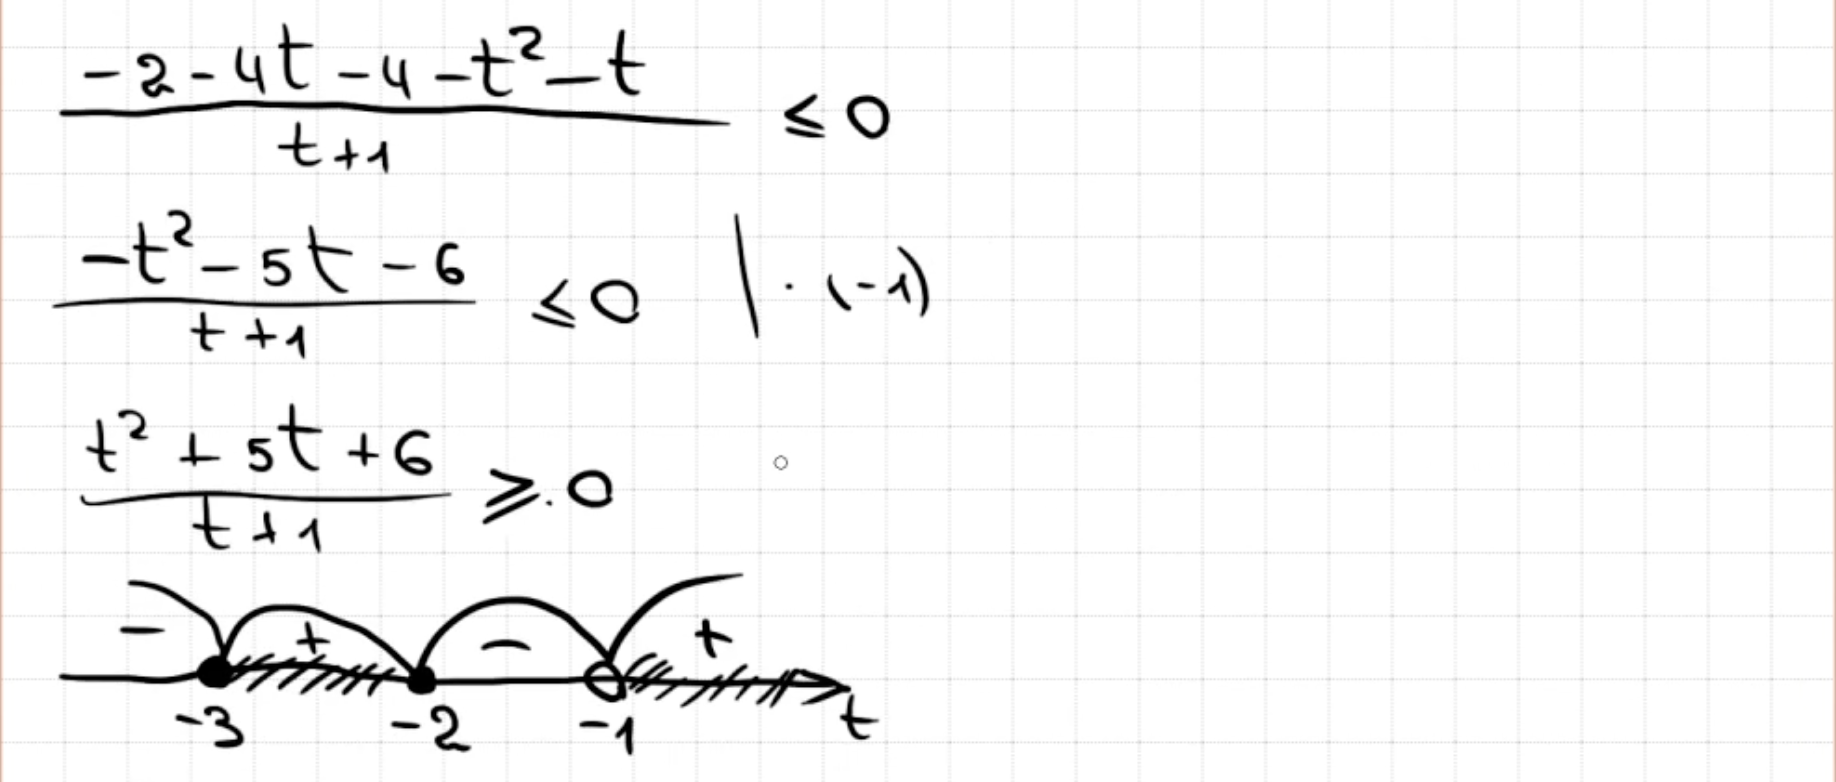 (-2-4t-4-t²-t)/(t+1) ≤ 0
(-t²-5t-6)/(t+1) ≤ 0 | · (-1)
(t²+5t+6)/(t+1) ≥. 0
- + - +
-3 -2 -1 t